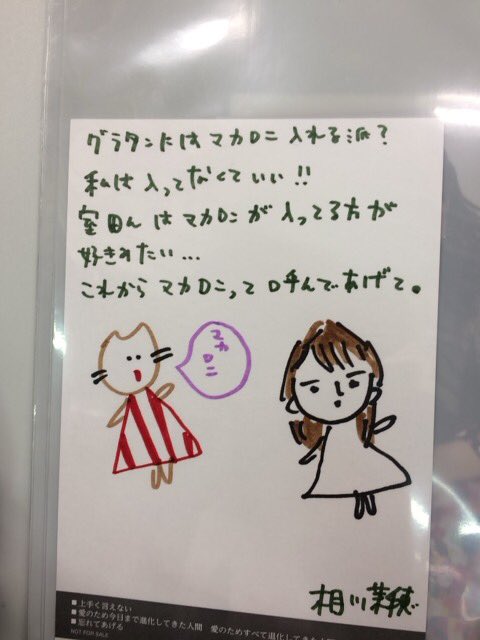 グラタンにはマカロニ入れる派?
私は入ってなくていい!!
室田んはマカロニが入ってる方が
好きみたい...
これからマカロニって呼んであげて。
マカロニ
相川茉穂
■上手く言えない
■愛のため今日まで進化してきた人間 愛のためすべて退化してきた
■忘れてあげる
NOT FOR SALE